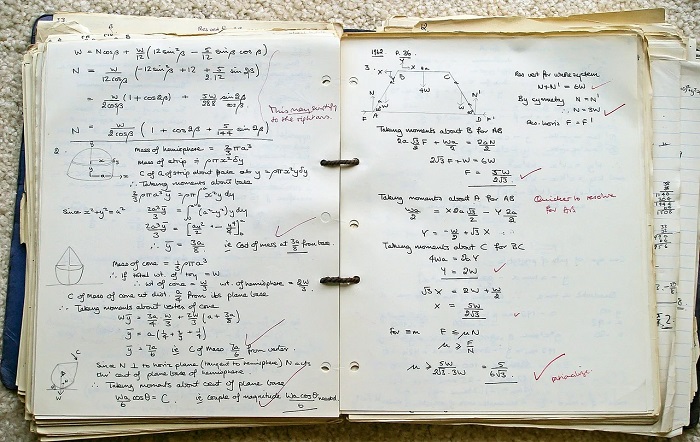 33
W = Ncosβ + W/12 (12 sin²β − 5/12 sinβ cosβ)
N = W/12cosβ (−12sin²β + 12 + 5/2.12 sin2β)
= W/2cosβ (1 + cos2β) + 5W/288 sin2β/cosβ.
This may simplify
to the right ans.
N = W/2cosβ (1 + cos2β + 5/144 sin2β)
2.
Mass of hemisphere = 2/3 ρπa³
Mass of strip = ρπx²δy
C of G of strip about base at y = ρπx²yδy
∴ Taking moments about base
2/3 ρπa³ȳ = ρπ∫x²y dy
Since x²+y²=a²
2a³ȳ/3 = ∫(a²−y²)y dy
2a³ȳ/3 = [ay²/2 − y⁴/4]
∴ ȳ = 3a/8 ie Cof mass at 3a/8 from base.
Mass of cone = 1/3 ρπa³
∴ If total wt. of toy = W
∴ wt of cone = W/3 wt. of hemisphere = 2W/3.
C of Mass of cone wt dist. a/4 from its plane base
∴ Taking moments about vertex of cone
Wȳ = 3a/4 W/3 + 2W/3 (a + 3a/8)
ȳ = a(1/4 + 2/3 + 1/4)
ȳ = 7a/6 ie C of Mass 7a/6 from vertex.
Since N ⊥ to horiz plane (tangent to hemisphere) N acts
thro' cent of plane base of hemisphere.
∴ Taking moments about cent of plane base
Wa/6 cosθ = C. ie couple of magnitude Wa cosθ/6 needed
2
1962. P.26.
3.
X
Y
B
C
4W
W
A
F
N
D
F'
Res vert for whole system
N+N' = 6W
By symmetry N = N'
∴ N = 3W
Res. horiz F = F'
Taking moments about B for AB
2a√3/2 F + Wa/2 = 2aN/2
2√3 F + W = 6W
F = 5W/2√3
Taking moments about A for AB
Wa/2 = X2a√3/2 − Y 2a/2
Y = −W/2 + √3 X
Quicker to resolve
for this
Taking moments about C for BC
4Wa = 2aY
Y = 2W
√3X = 2W + W/2
X = 5W/2√3
for ≡m F ≤ μN
μ ≥ F/N
μ ≥ 5W/2√3·3W = 5/6√3